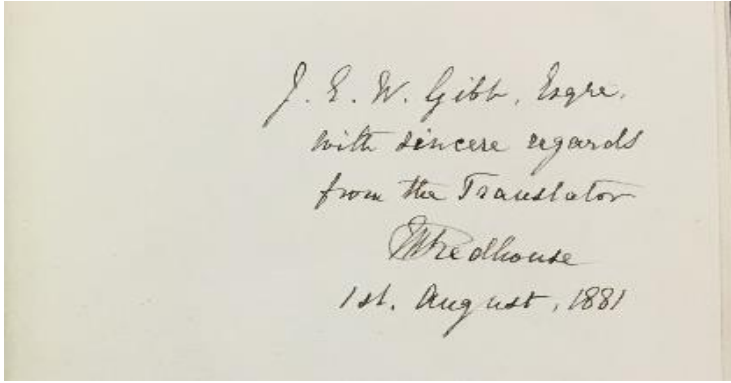 J. E. W. Gibb, Esqre.
with sincere regards
from the Translator
JWRedhouse
1st. August, 1881